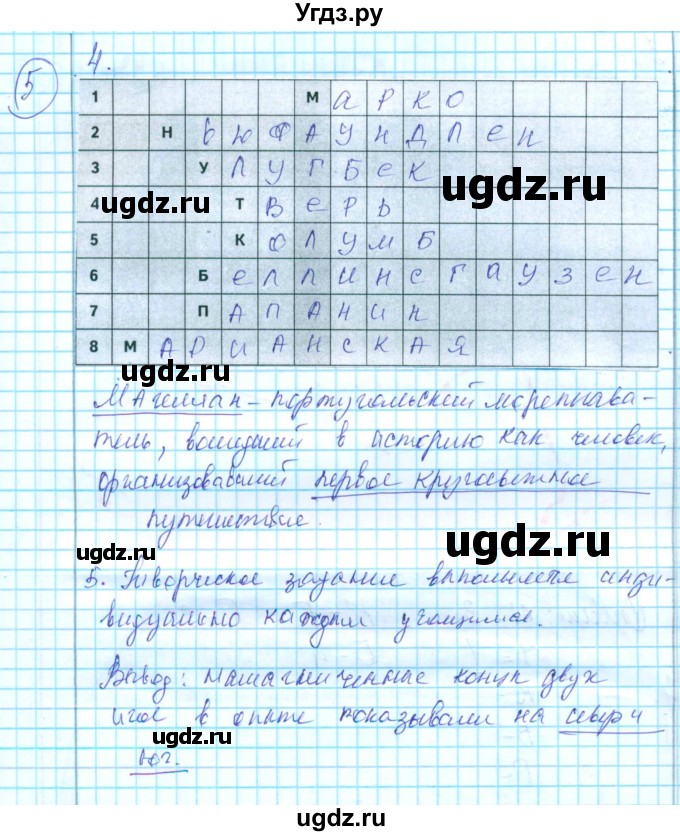 Угдз.ру
5
4.
1 МАРКО
2 НЬЮФАУНДЛЕН
3 УЛУГБЕК
4 ТВЕРЬ
5 КОЛУМБ
6 БЕЛЛИНСГАУЗЕН
7 ПАПАНИН
8 МАРИАНСКАЯ
ugdz.ru
ugdz.ru
ugdz.ru
Магеллан – португальский мореплава-
тель, вошедший в историю как человек,
организовавший первое кругосветное
путешествие.
ugdz.ru
ugdz.ru
5. Творческое задание выполняется инди-
видуально каждым учащимся.
Вывод: намагниченные концы двух
игл в опыте показывали на север и
ugdz.ru
юг.
ugdz.ru
ugdz.ru